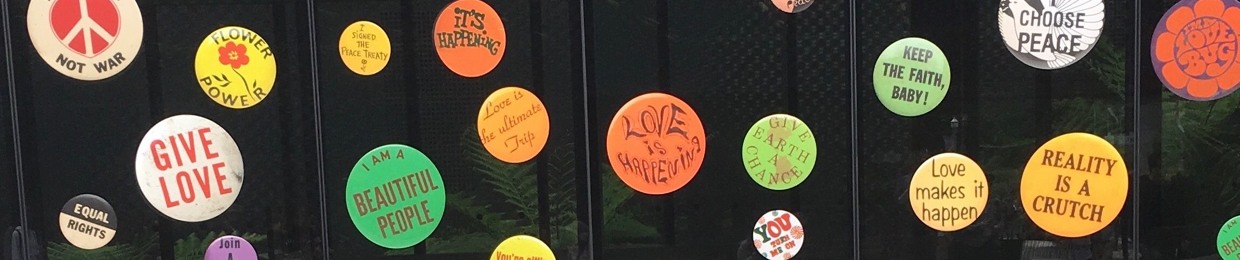 NOT WAR
FLOWER
POWER
GIVE
LOVE
EQUAL
RIGHTS
Join
A
I SIGNED
THE
PEACE TREATY
IT'S
HAPPENING
I AM A
BEAUTIFUL
PEOPLE
Love is
he ultimate
Trip
LOVE
is
HAPPENING
GIVE
EARTH
A
CHANCE
YOU
TURN
ME ON
KEEP
THE FAITH,
BABY!
CHOOSE
PEACE
Love
makes it
happen
REALITY
IS A
CRUTCH
LOVE
BUG